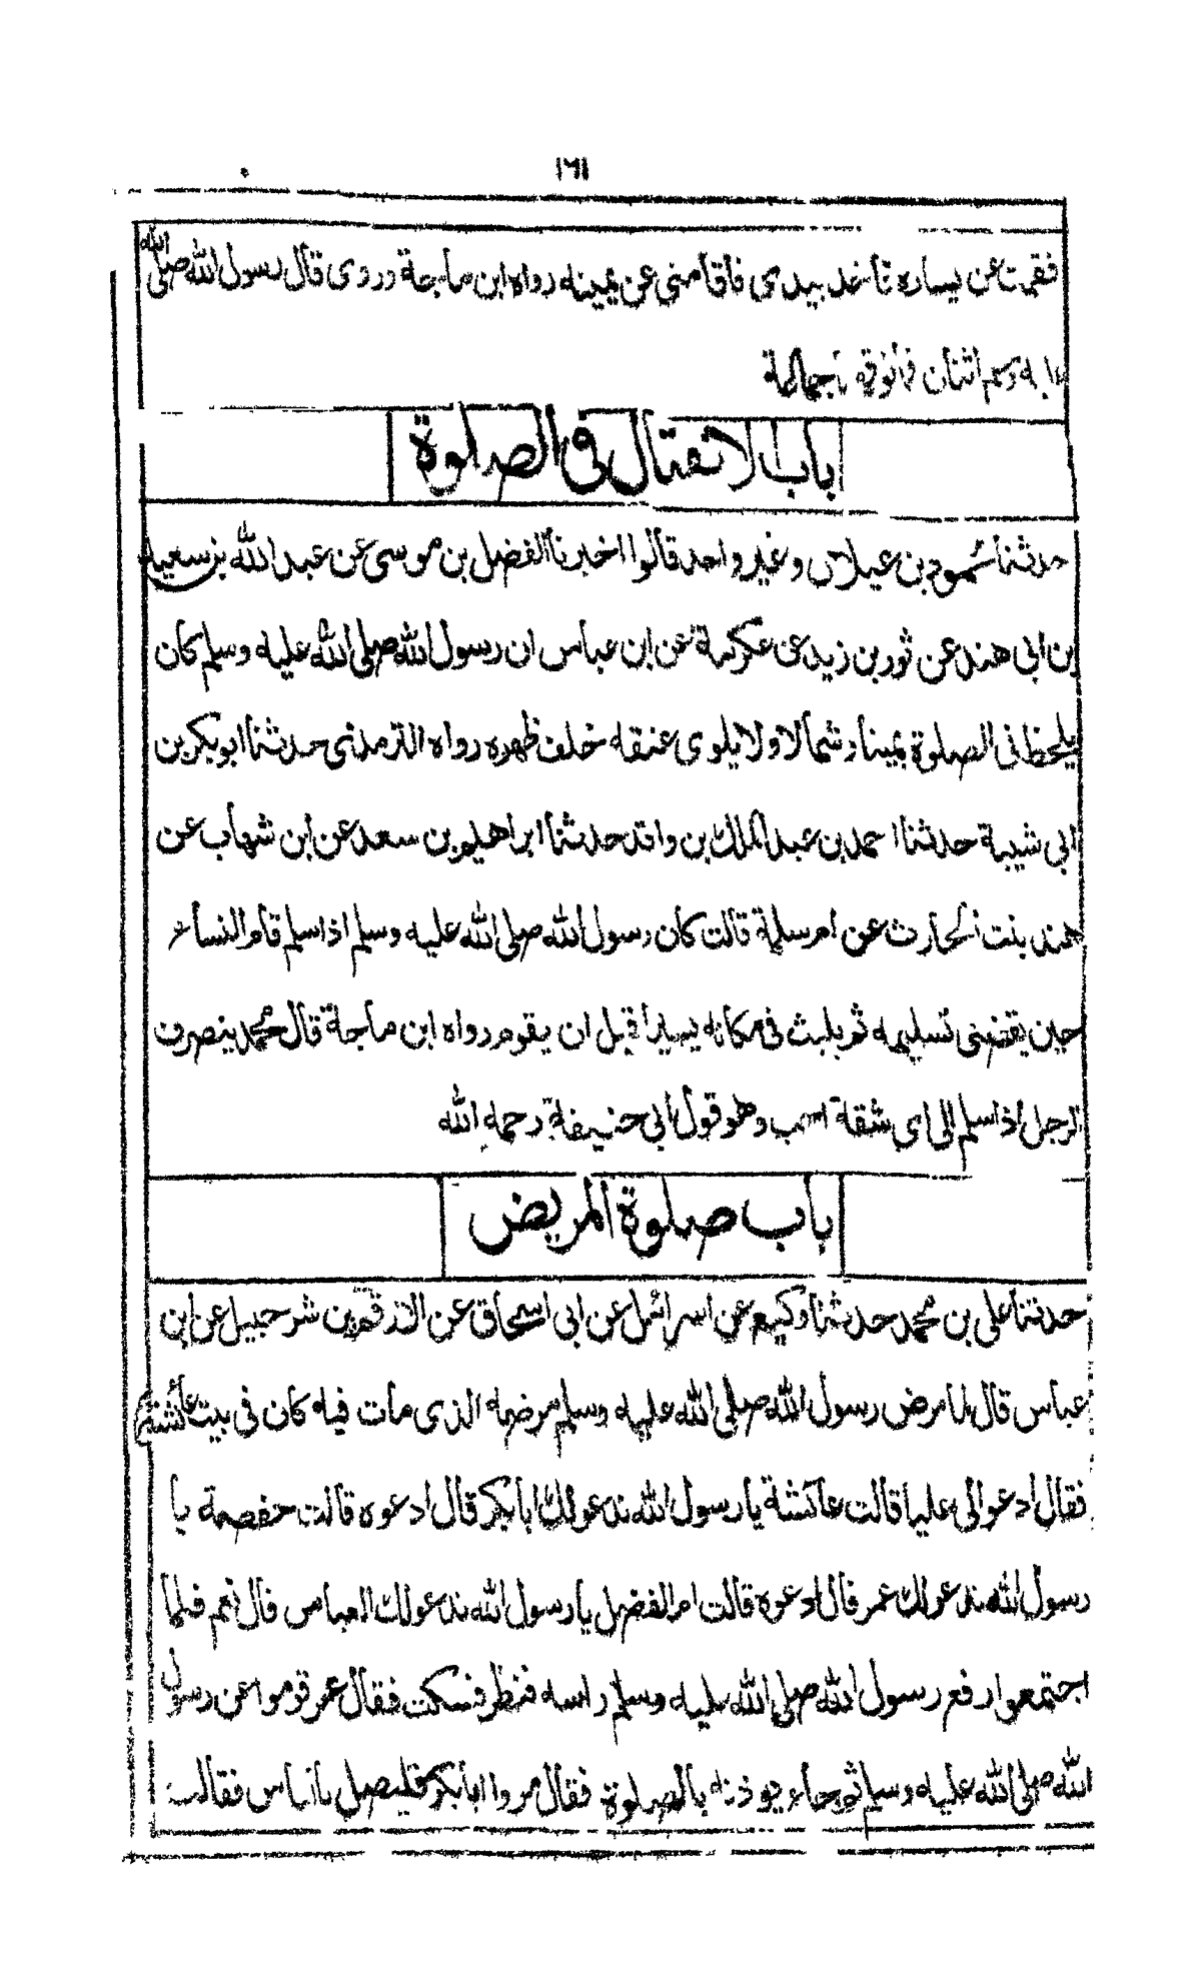 ١٦١
فقمت عن يساره فأخذ بيدى فأقامنى عن يمينه رواه ابن ماجة وروى قال رسول الله صلى الله
عليه وسلم اثنان فما فوقه جماعة
باب الانفتال فى الصلوة
حدثنا محمود بن غيلان وغير واحد قالوا اخبرنا الفضل بن موسى عن عبد الله بن سعيد
بن ابى هند عن ثور بن زيد عن عكرمة عن ابن عباس ان رسول الله صلى الله عليه وسلم كان
يلحظ فى الصلوة يمينا وشمالا ولا يلوى عنقه خلف ظهره رواه الترمذى حدثنا ابو بكر بن
ابى شيبة حدثنا احمد بن عبد الملك بن واقد حدثنا ابراهيم بن سعد عن ابن شهاب عن
هند بنت الحارث عن ام سلمة قالت كان رسول الله صلى الله عليه وسلم اذا سلم قام النساء
حين يقضى تسليمه ثم يلبث فى مكانه يسيرا قبل ان يقوم رواه ابن ماجة قال محمد ينصرف
الرجل اذا سلم الى اى شقة احب وهو قول ابى حنيفة رحمه الله
باب صلوة المريض
حدثنا على بن محمد حدثنا وكيع عن اسرائيل عن ابى اسحاق عن الارقم بن شرحبيل عن ابن
عباس قال لما مرض رسول الله صلى الله عليه وسلم مرضه الذى مات فيه كان فى بيت عائشة
فقال ادعوا لى عليا قالت عائشة يا رسول الله ندعو لك ابا بكر قال ادعوه قالت حفصة يا
رسول الله ندعو لك عمر قال ادعوه قالت ام الفضل يا رسول الله ندعو لك العباس قال نعم فلما
اجتمعوا رفع رسول الله صلى الله عليه وسلم راسه فنظر فسكت فقال عمر قوموا عن رسول
الله صلى الله عليه وسلم ثم جاء يوذنه بالصلوة فقال مروا ابا بكر فليصل بالناس فقالت